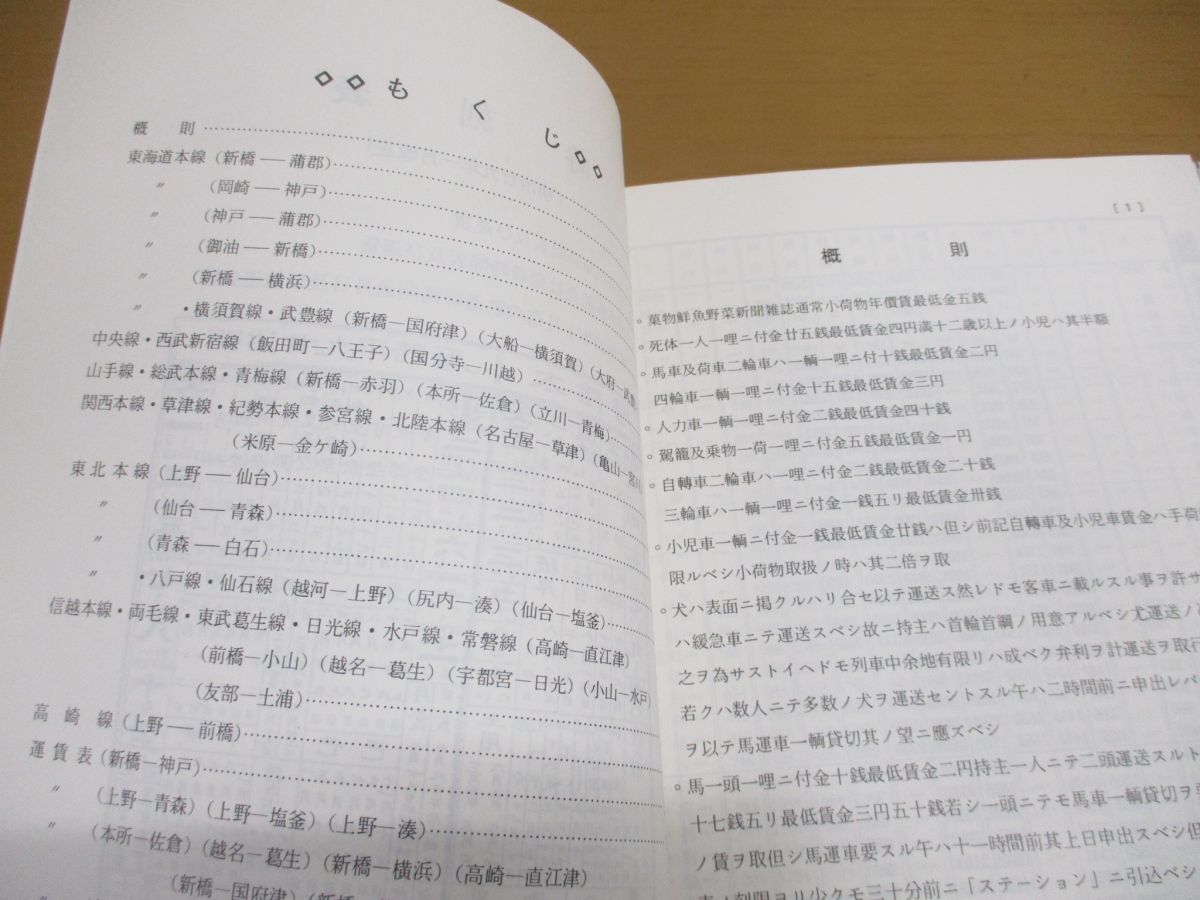 ◇◇もくじ◇◇
概則
東海道本線（新橋―蒲郡）
〃（岡崎―神戸）
〃（神戸―蒲郡）
〃（御油―新橋）
〃（新橋―横浜）
〃・横須賀線・武豊線（新橋―国府津）（大船―横須賀）（大府―武豊
中央線・西武新宿線（飯田町―八王子）（国分寺―川越）
山手線・総武本線・青梅線（新橋―赤羽）（本所―佐倉）（立川―青梅）
関西本線・草津線・紀勢本線・参宮線・北陸本線（名古屋―草津）（亀山―宮
（米原―金ケ崎）
東北本線（上野―仙台）
〃（仙台―青森）
〃（青森―白石）
〃・八戸線・仙石線（越河―上野）（尻内―湊）（仙台―塩釜）
信越本線・両毛線・東武葛生線・日光線・水戸線・常磐線（高崎―直江津）
（前橋―小山）（越名―葛生）（宇都宮―日光）（小山―水戸）
（友部―土浦）
高崎線（上野―前橋）
運賃表（新橋―神戸）
〃（上野―青森）（上野―塩釜）（上野―湊）
〃（本所―佐倉）（越名―葛生）（新橋―横浜）（高崎―直江津）
（新橋―国府津）（新橋
〔1〕
概則
。菓物鮮魚野菜新聞雑誌通常小荷物年價賃最低金五銭
。死体一人一哩ニ付金廿五銭最低賃金四円満十二歳以上ノ小児ハ其半額
。馬車及荷車二輪車ハ一輌一哩ニ付十銭最低賃金二円
四輪車一輌一哩ニ付金十五銭最低賃金三円
。人力車一輌一哩ニ付金二銭最低賃金四十銭
。駕籠及乗物一荷一哩ニ付金五銭最低賃金一円
。自轉車二輪車ハ一哩ニ付金二銭最低賃金二十銭
三輪車ハ一輌一哩ニ付金一銭五リ最低賃金卅銭
。小児車一輌ニ付金一銭最低賃金廿銭ハ但シ前記自轉車及小児車賃金ハ手荷
限ルベシ小荷物取扱ノ時ハ其二倍ヲ取
。犬ハ表面ニ掲クルハリ合セ以テ運送ス然レドモ客車ニ載ルスル事ヲ許サ
ハ緩急車ニテ運送スベシ故ニ持主ハ首輪首綱ノ用意アルベシ尤運送ノ
之ヲ為サストイヘドモ列車中余地有限リハ成ベク弁利ヲ計運送ヲ取行
若クハ数人ニテ多数ノ犬ヲ運送セントスル午ハ二時間前ニ申出レバ
ヲ以テ馬運車一輌貸切其ノ望ニ應ズベシ
。馬一頭一哩ニ付金十銭最低賃金二円持主一人ニテ二頭運送スルト
十七銭五リ最低賃金三円五十銭若シ一頭ニテモ馬車一輌貸切ヲ要
ノ賃ヲ取但シ馬運車要スル午ハ十一時間前其上日申出スベシ但
ノ刻限ヨリ少クモ三十分前ニ「ステーション」ニ引込ベシ